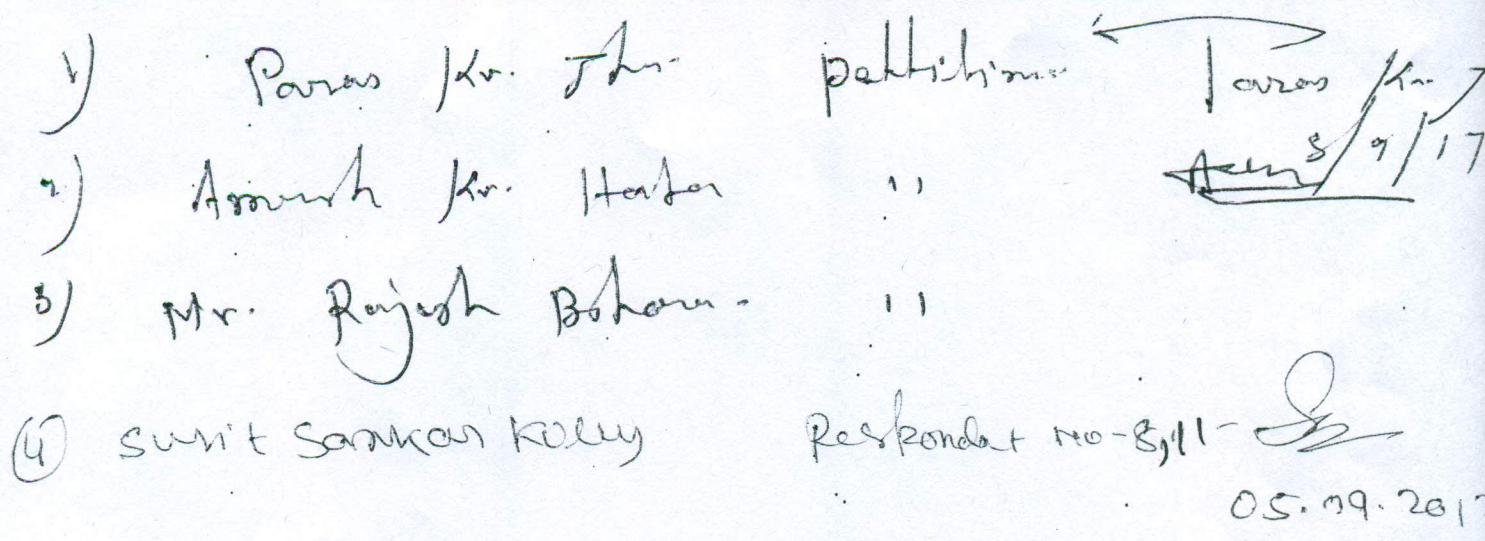 1) Paras Kr. Jha pettitioner Paras Kr.
5/9/17
2) Kr.
3) Mr. Rajesh Bohara
4 Surit Sarkar Koley Respondat no-8,11-
05.09.201